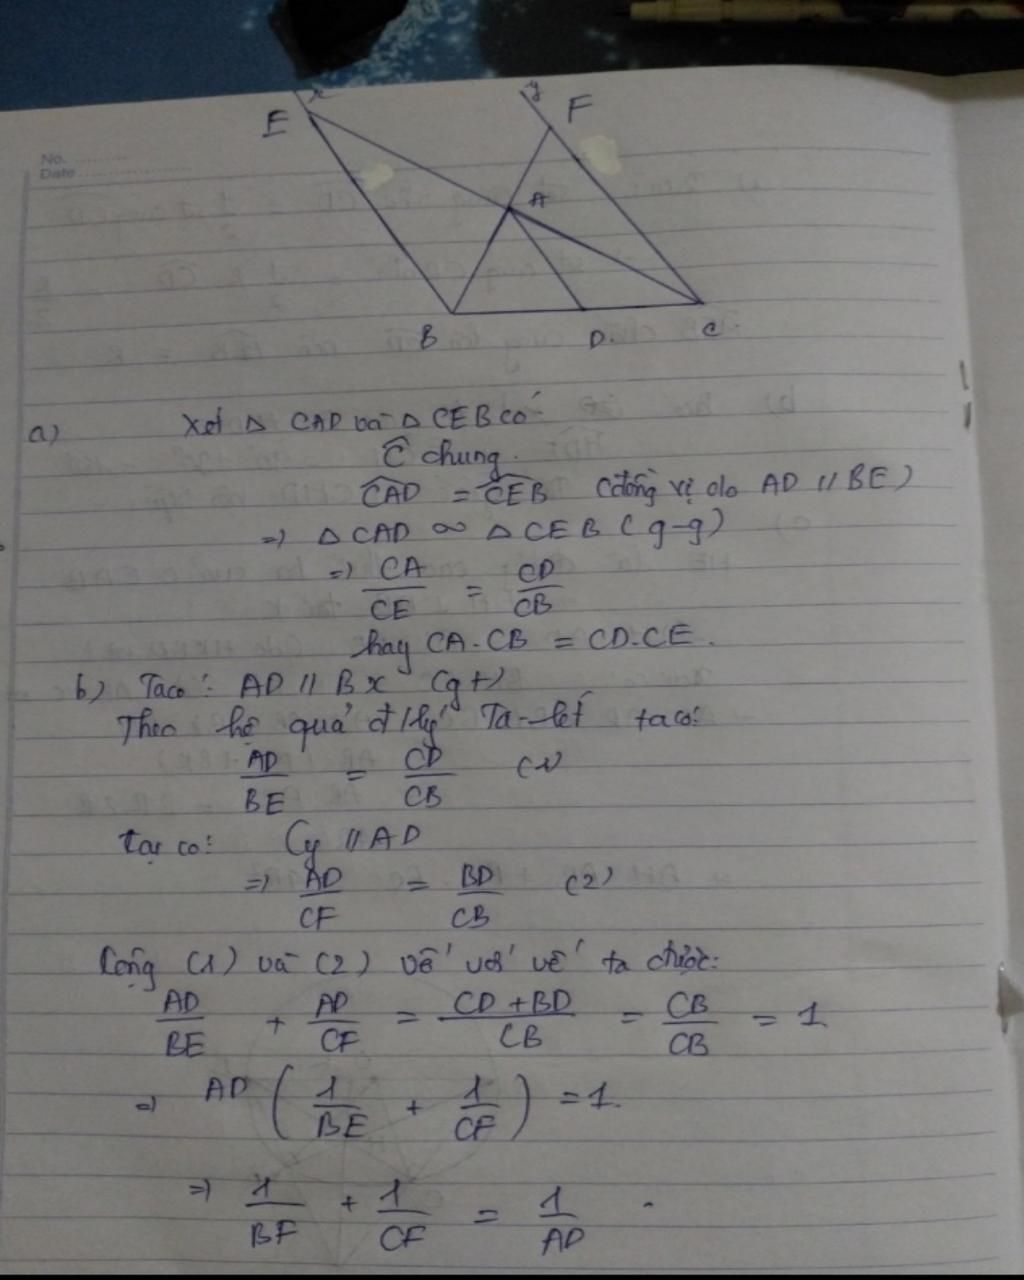 x y
E F
No.
Date
A
B D. C
a) Xét Δ CAD và Δ CEB có:
Ĉ chung.
CAD = CEB (đồng vị do AD // BE)
=> Δ CAD ∽ Δ CEB (g-g)
=> CA/CE = CD/CB
hay CA.CB = CD.CE.
b) Ta có: AD // Bx (gt)
Theo hệ quả đ/lý Ta-lét ta có:
AD/BE = CD/CB (1)
Lại có: Cy // AD
=> AD/CF = BD/CB (2)
Cộng (1) và (2) vế với vế ta được:
AD/BE + AD/CF = CD+BD/CB = CB/CB = 1
=> AD (1/BE + 1/CF) = 1.
=> 1/BF + 1/CF = 1/AD .